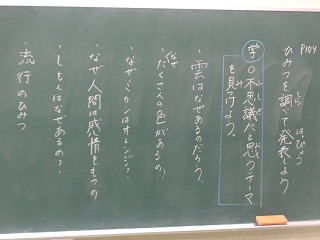 P104
ひみつを調べて発表しよう
しら
はっぴょう
学
○不思議だと思うテーマ
ふしぎ
おも
を見つけよう。
み
・雲はなぜあるのだろう。
なぜ
・たくさんの色があるの?
・なぜ、ミカンはオレンジ?
・なぜ人間は感情をもつの
・しもくはなぜあるの?
・流行のひみつ